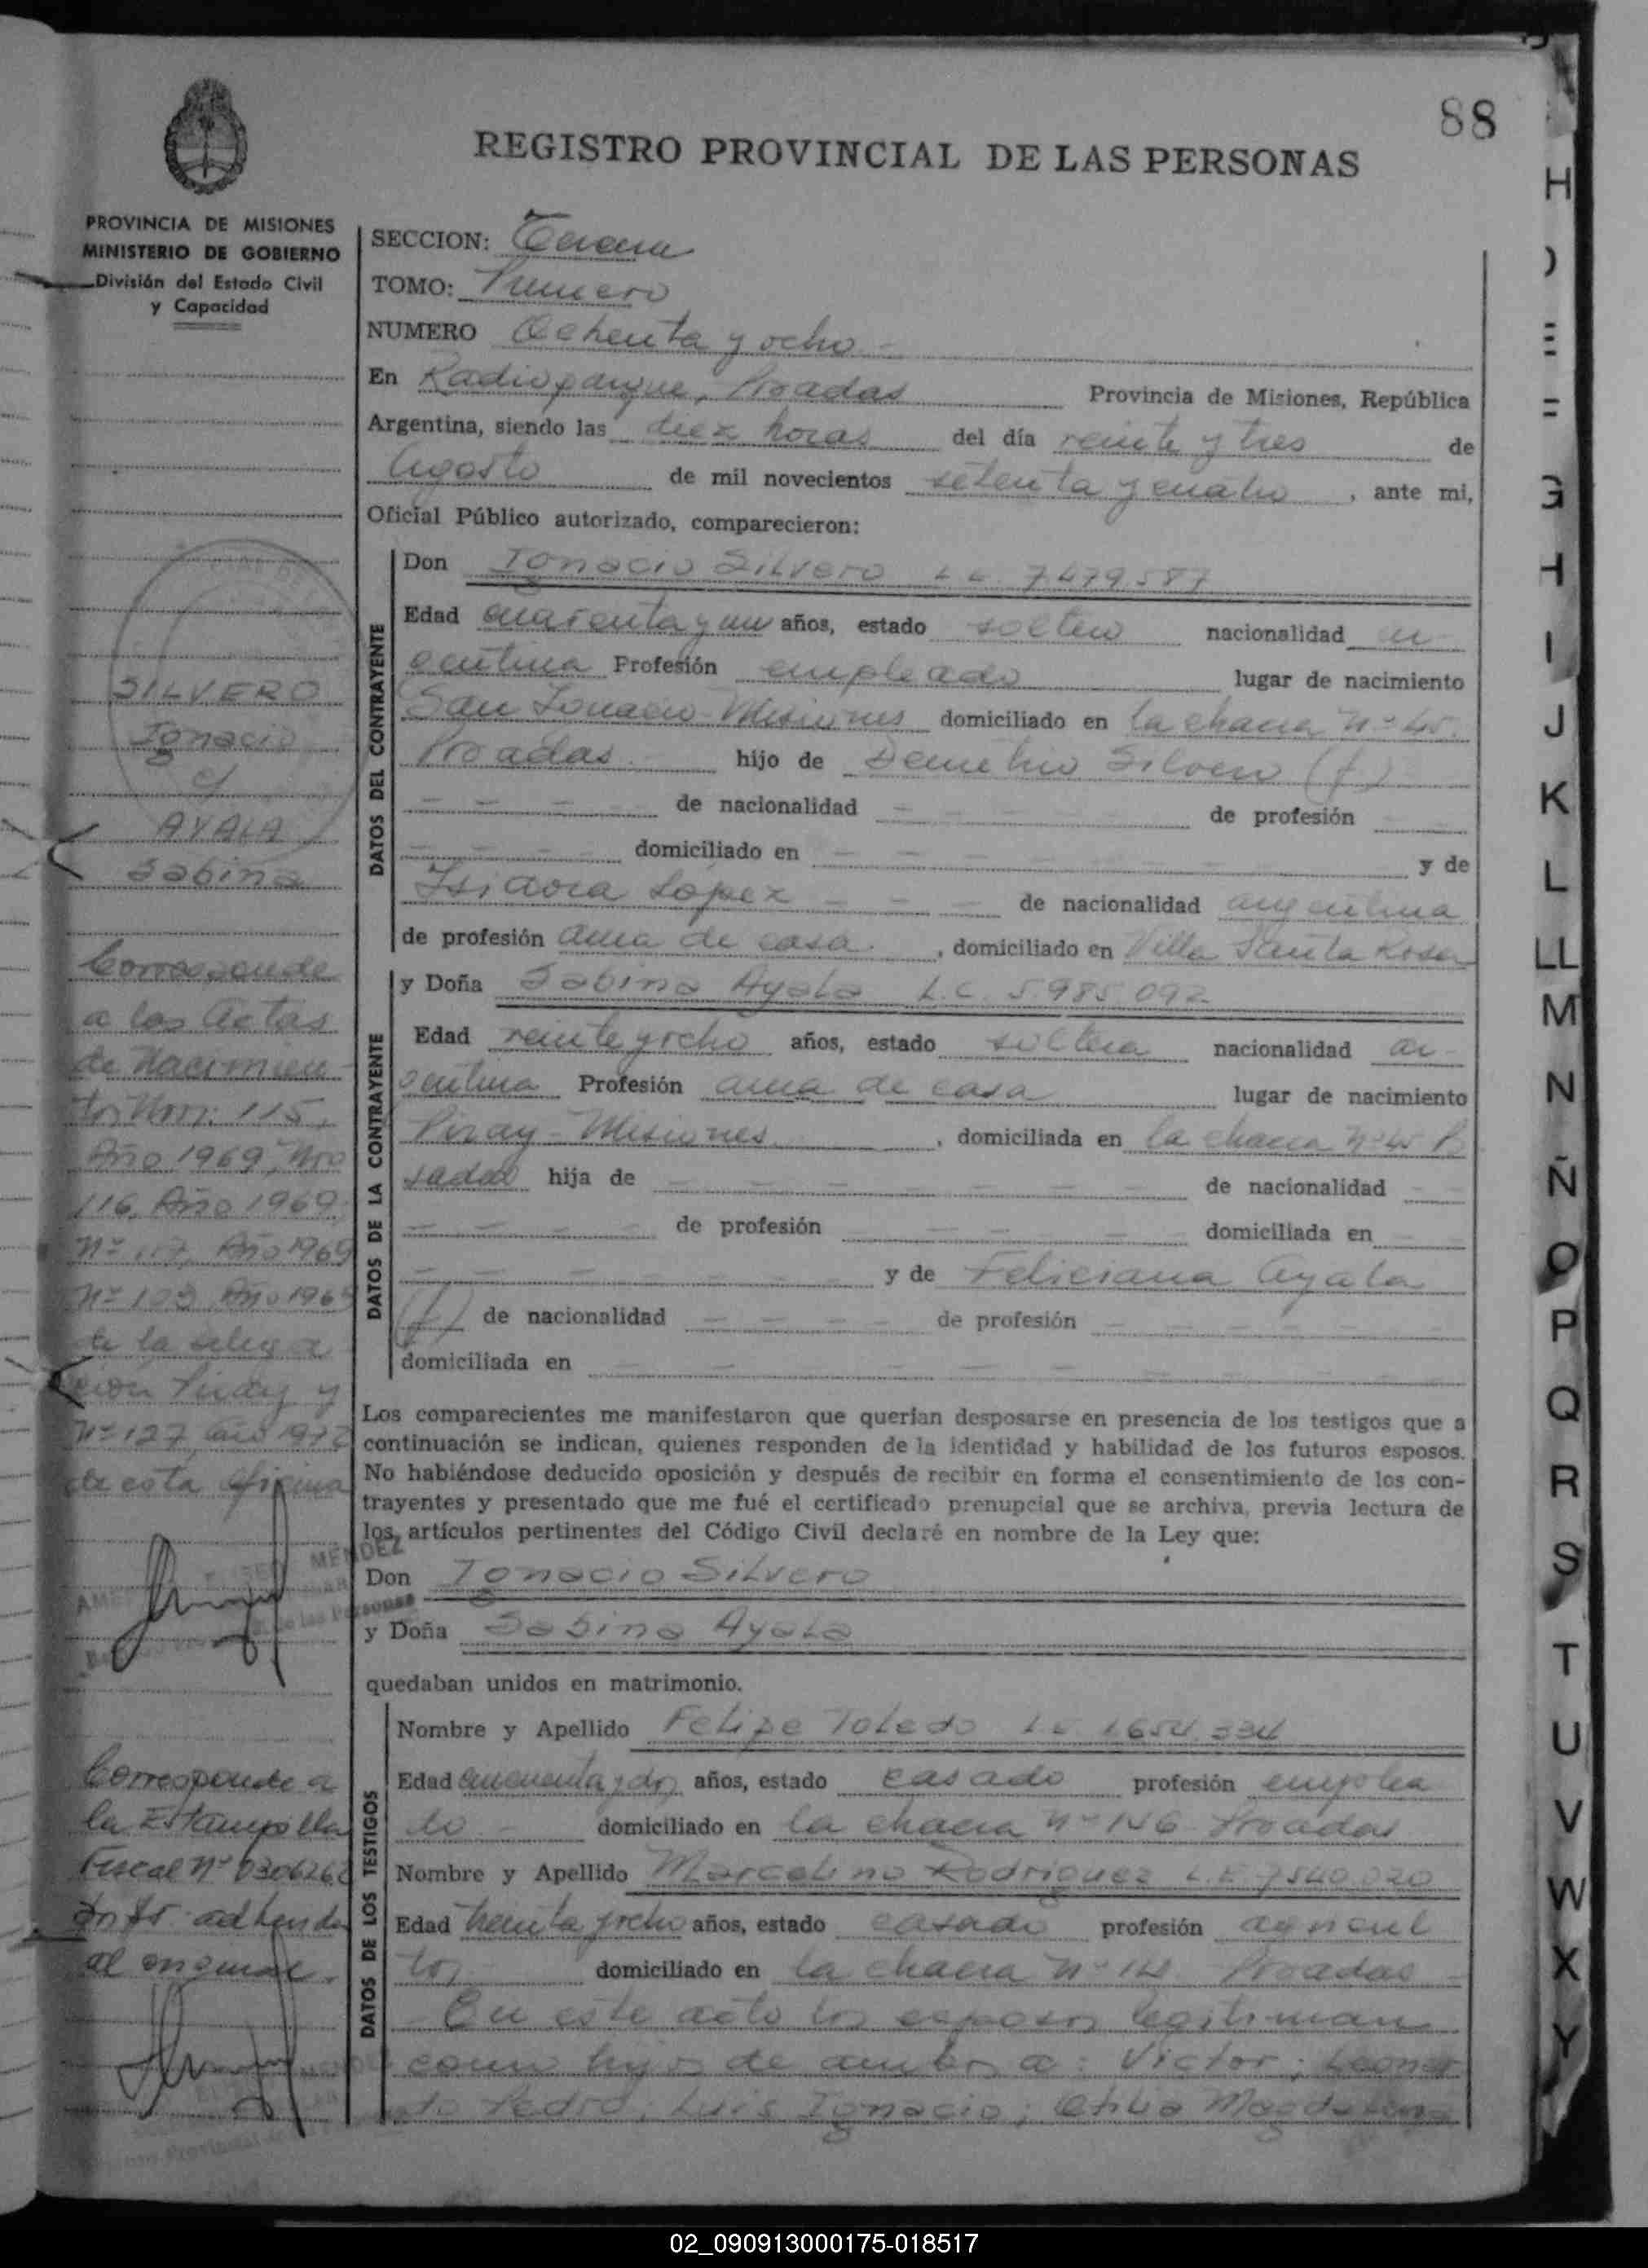 88
REGISTRO PROVINCIAL DE LAS PERSONAS
PROVINCIA DE MISIONES
MINISTERIO DE GOBIERNO
División del Estado Civil
y Capacidad
SECCION: Tercera
TOMO: Primero
NUMERO Ochenta y ocho
En Radioparque, Posadas Provincia de Misiones, República
Argentina, siendo las diez horas del día veinte y tres de
Agosto de mil novecientos setenta y cuatro, ante mi,
Oficial Público autorizado, comparecieron:
DATOS DEL CONTRAYENTE
Don Ignacio Silvero L.E. 7.479.587
Edad cuarenta y un años, estado soltero nacionalidad ar-
gentina Profesión empleado lugar de nacimiento
San Ignacio-Misiones domiciliado en la chacra Nº 45
Posadas hijo de Demetrio Silvero (f)
de nacionalidad de profesión
domiciliado en y de
Isidora Lopez de nacionalidad argentina
de profesión ama de casa, domiciliado en Villa Santa Rosa
DATOS DE LA CONTRAYENTE
y Doña Sabina Ayala L.C. 5.985.092
Edad veinte y ocho años, estado soltera nacionalidad ar-
gentina Profesión ama de casa lugar de nacimiento
Piray-Misiones, domiciliada en la chacra Nº 45 Po
sadas hija de de nacionalidad
de profesión domiciliada en
y de Feliciana Ayala
(f) de nacionalidad de profesión
domiciliada en
Los comparecientes me manifestaron que querían desposarse en presencia de los testigos que a
continuación se indican, quienes responden de la identidad y habilidad de los futuros esposos.
No habiéndose deducido oposición y después de recibir en forma el consentimiento de los con-
trayentes y presentado que me fué el certificado prenupcial que se archiva, previa lectura de
los artículos pertinentes del Código Civil declaré en nombre de la Ley que:
Don Ignacio Silvero
y Doña Sabina Ayala
quedaban unidos en matrimonio.
DATOS DE LOS TESTIGOS
Nombre y Apellido Felipe Toledo L.E. 1.654.334
Edad cincuenta y dos años, estado casado profesión emplea
do domiciliado en la chacra Nº 146 Posadas
Nombre y Apellido Marcelino Rodriguez L.E. 7.540.020
Edad treinta y ocho años, estado casado profesión agricul
tor domiciliado en la chacra Nº Posadas
En este acto los esposos legitiman
como hijos de ambos a: Victor; Leonar
do Pedro; Luis Ignacio; Otilia Magdalena
SILVERO
Ignacio
c/
AYALA
Sabina
Corresponde
a las Actas
de Nacimien-
tos Nros: 115,
Año 1969, Nro
116, Año 1969,
Nº 117, Año 1969
Nº 103 Año 1969
de la delega
cion Piray y
Nº 127 año 1972
de esta oficina
MENDEZ
Corresponde a
la Estampilla
Fiscal Nº
adherida
al original.
H
G
H
I
J
K
L
LL
M
N
Ñ
O
P
Q
R
S
T
U
V
W
X
Y
02_090913000175-018517